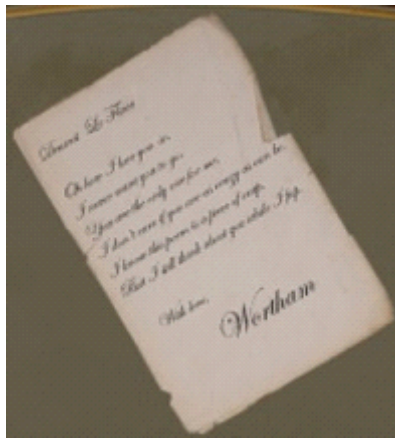 Dearest La Fleur
Oh how I love you so,
I never want you to go.
You are the only one for me,
I don't care if you are as crazy as can be.
I know this poem is a piece of crap,
But I still think about you while I fap.
With love,
Wortham